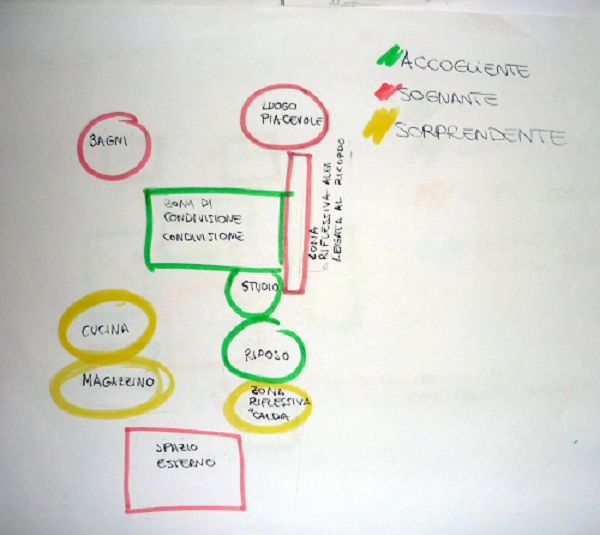 ACCOGLIENTE
SOGNANTE
SORPRENDENTE
LUOGO
PIACEVOLE
BAGNI
ZONA DI
CONDIVISIONE
CONDIVISIONE
ZONA
RIFLESSIVA
LEGATA AL RICORDO
STUDIO
CUCINA
RIPOSO
MAGAZZINO
ZONA
RIFLESSIVA
"CALDA
SPAZIO
ESTERNO